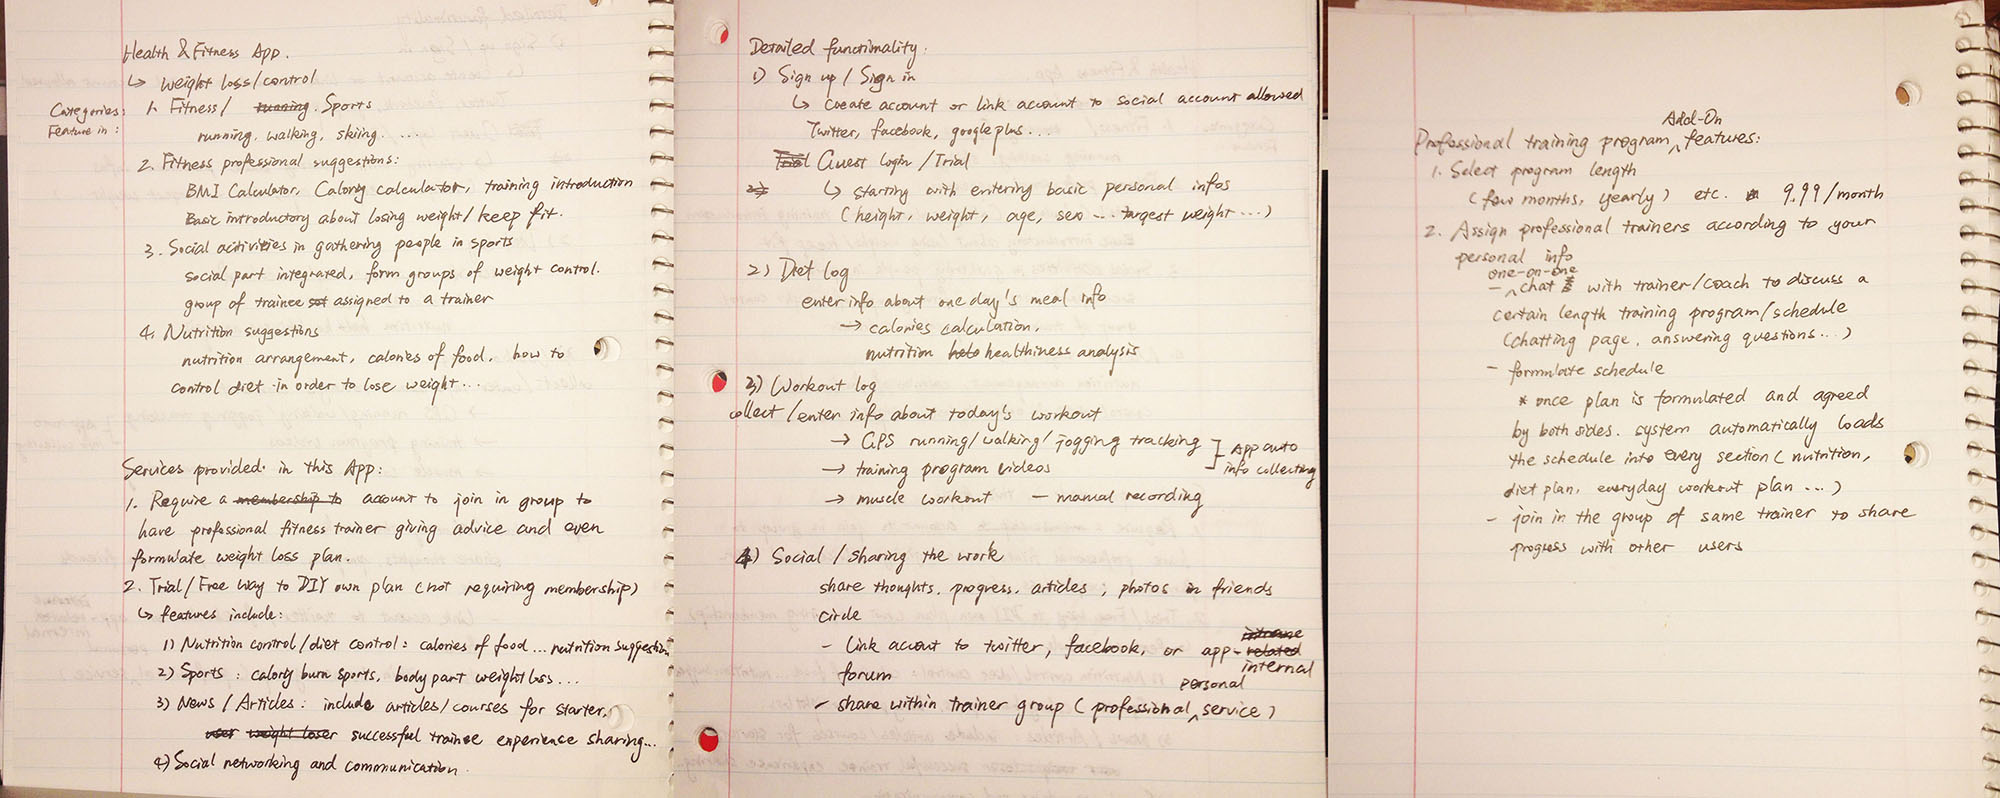 Health & Fitness App.
↳ weight loss/control
Categories: 1. Fitness/ running. Sports
Feature in: running, walking, skiing. ...
2. Fitness professional suggestions:
BMI Calculator, Calory calculator, training introduction
Basic introductory about losing weight/keep fit.
3. Social activities in gathering people in sports
social part integrated, form groups of weight control.
group of trainee assigned to a trainer
4. Nutrition suggestions
nutrition arrangement, calories of food, how to
control diet in order to lose weight...
Services provided in this App:
1. Require a membership to account to join in group to
have professional fitness trainer giving advice and even
formulate weight loss plan.
2. Trial/Free way to DIY own plan (not requiring membership)
↳ features include:
1) Nutrition control/diet control: calories of food ... nutrition suggestion
2) Sports: calory burn sports, body part weight loss ...
3) News/Articles: include articles/courses for starter,
user weight loser successful trainee experience sharing...
4) Social networking and communication.
Detailed functionality:
1) Sign up / Sign in
↳ Create account or link account to social account allowed
Twitter, facebook, google plus...
Trial Guest login /Trial
2) ↳ starting with entering basic personal infos
(height, weight, age, sex ... target weight ...)
2) Diet log
enter info about one day's meal info
→ calories calculation,
nutrition healthiness analysis
3) Workout log
collect/enter info about today's workout
→ GPS running/walking/jogging tracking ] App auto
→ training program videos info collecting
→ muscle workout — manual recording
4) Social / Sharing the work
share thoughts, progress, articles, photos in friends
circle
- Link account to twitter, facebook, or app-related internal
forum
- share within trainer group (professional personal service)
Professional training program Add-On features:
1. Select program length
(few months, yearly) etc. 9.99/month
2. Assign professional trainers according to your
personal info
- one-on-one chat with trainer/coach to discuss a
certain length training program/schedule
(chatting page, answering questions...)
- formulate schedule
* once plan is formulated and agreed
by both sides. system automatically loads
the schedule into every section (nutrition,
diet plan, everyday workout plan ...)
- join in the group of same trainer to share
progress with other users